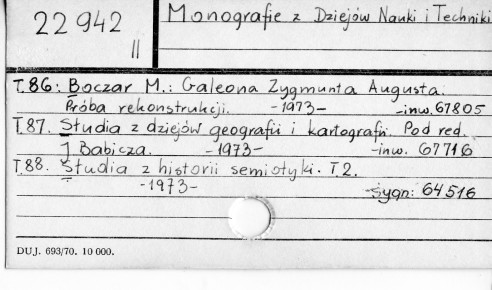 22 942
II
Monografie z Dziejów Nauki i Techniki
T.86: Boczar M.: Galeona Zygmunta Augusta.
Próba rekonstrukcji. -1973- -inw. 67805
T.87. Studia z dziejów geografii i kartografii. Pod red.
J. Babicza. -1973- -inw. 67716
T.88. Studia z historii semiotyki. T.2.
-1973- -sygn: 64516
DUJ. 693/70. 10 000.